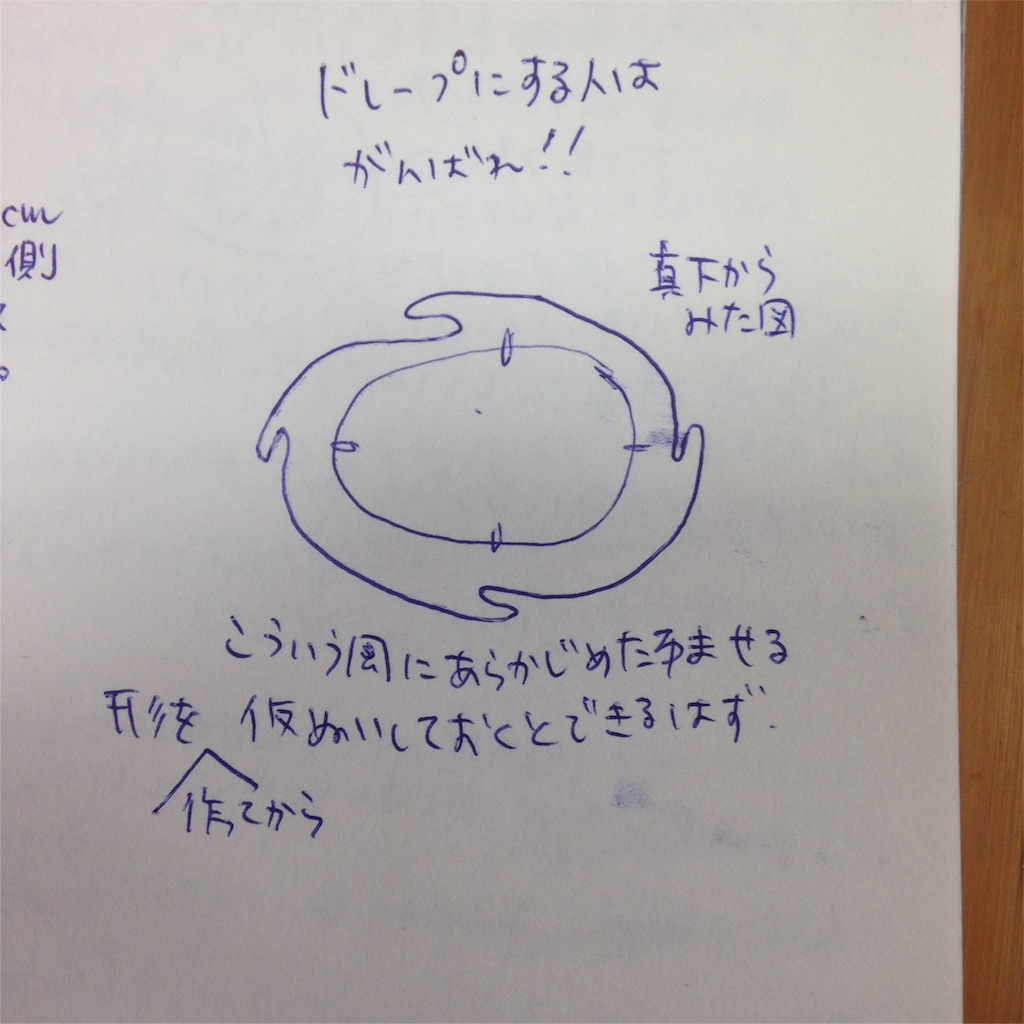 ドレープにする人は
がんばれ!!
cm
側
真下から
みた図
こういう風にあらかじめたるませる
形を 仮ぬいしておくとできるはず.
作ってから